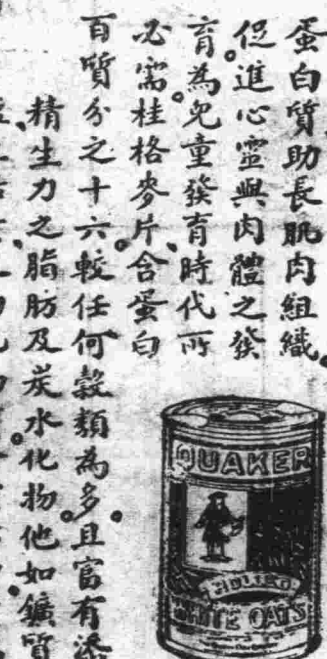 蛋白質助長肌肉組織。
促進心靈與肉體之發
育。為兒童發育時代所
必需。桂格麥片、含蛋白
百質分之十六。較任何穀類為多。且富有添
精生力之脂肪及炭水化物他如鑛質
QUAKER
ROLLED
WHITE OATS